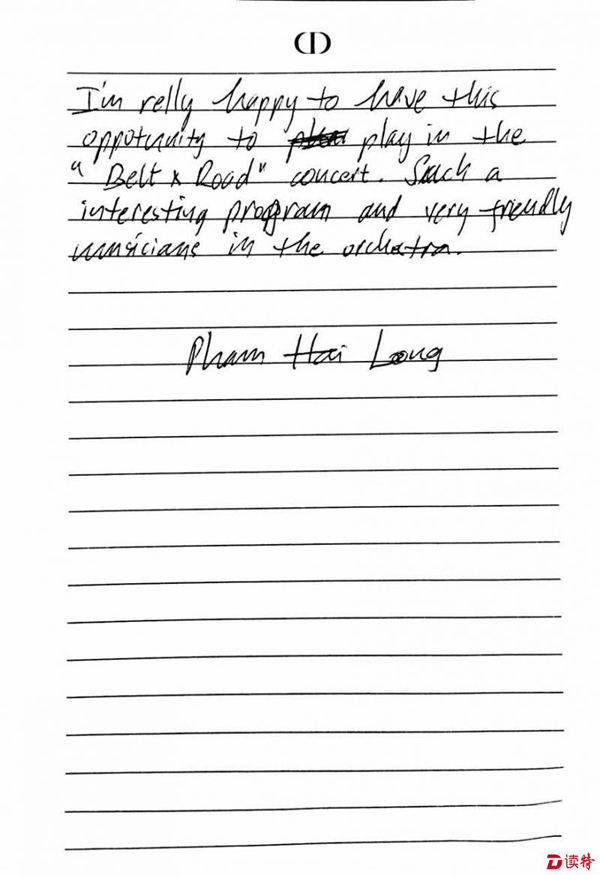 I'm relly happy to have this
oppotunity to play in the
"Belt & Road" concert. Such a
interesting program and very friendly
musicians in the orchestra.
Pham Hai Long
读特